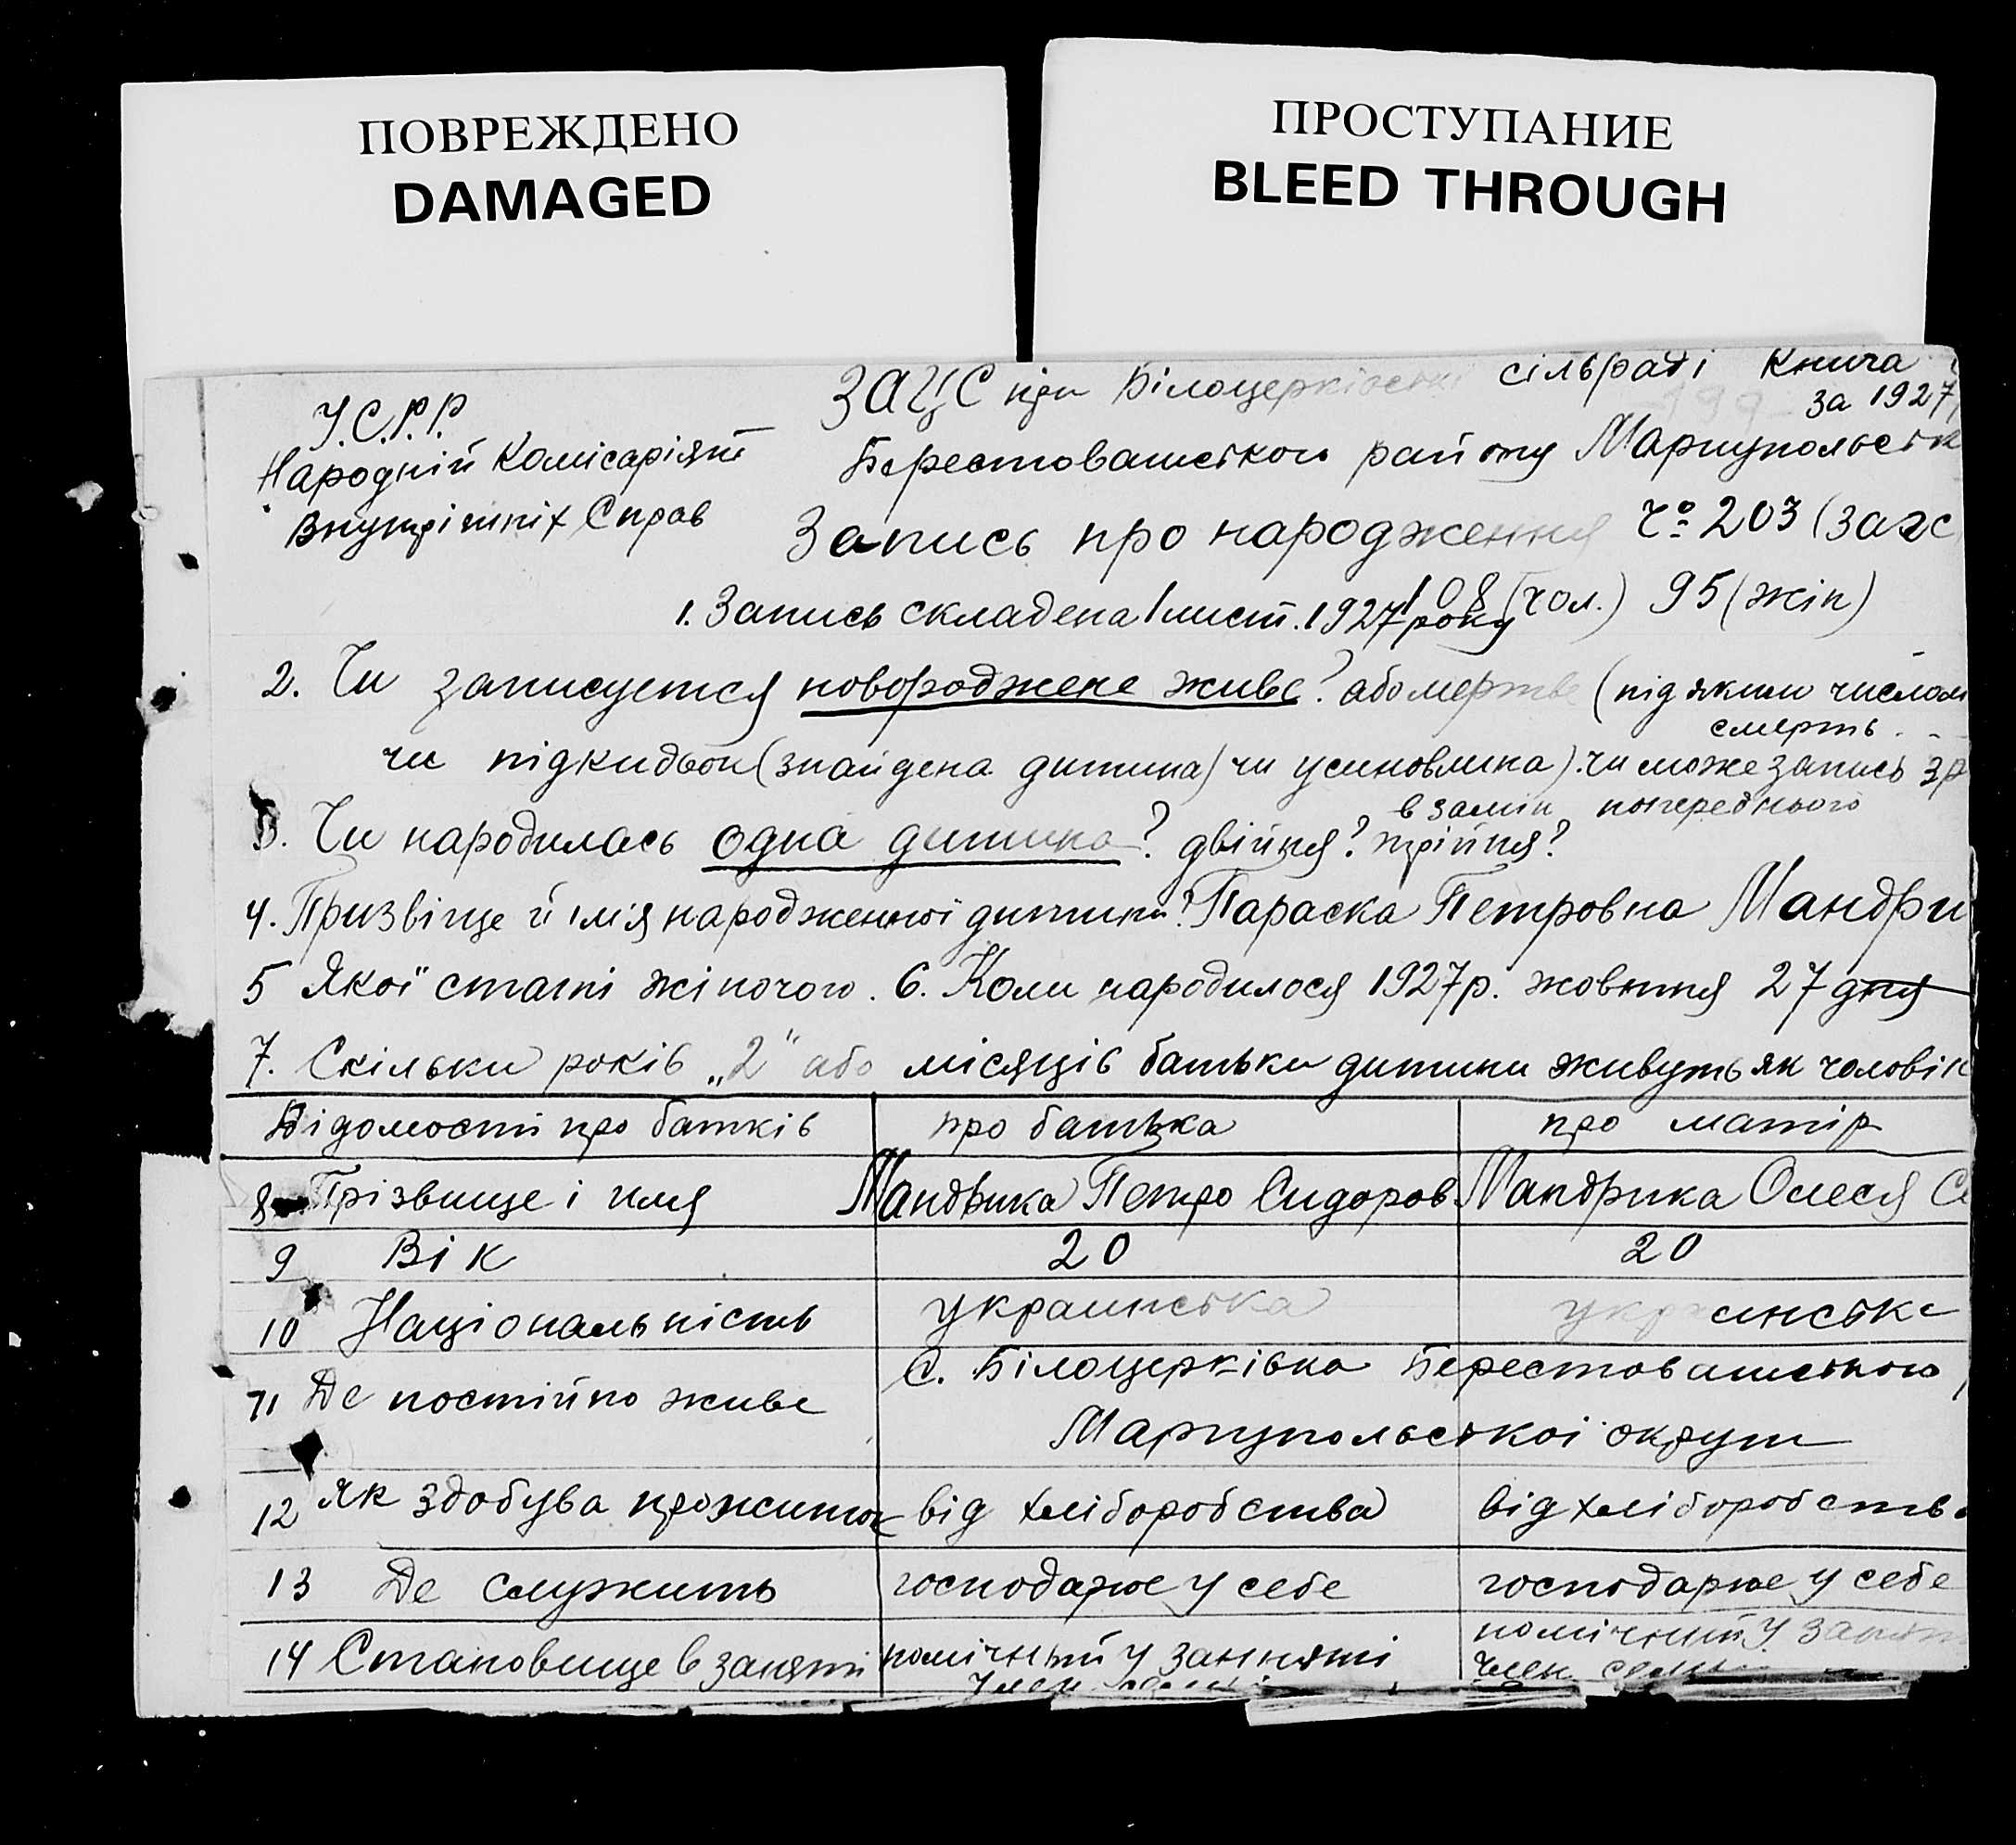 ПОВРЕЖДЕНО
DAMAGED
ПРОСТУПАНИЕ
BLEED THROUGH
У.С.Р.Р.
Народній Комісаріят
Внутрішніх Справ
ЗАЦС при Білоцерківські сільраді Книга
за 1927
Берестоватського району Маріупольськ
Запись про народження Ч° 203 (загс
108 (чол.) 95 (жін)
1. Запись складена 1 лист. 1927 року
2. Чи записуется новороджене живе? або мертве (під яким числом
смерть
чи підкидьок (знайдена дитина) чи усиновлина). чи може запись зр
в замін попереднього
3. Чи народилась одна дитина? двійня? трійня?
4. Призвіще й імія народженної дитини? Параска Петровна Мандри
5 Якої статі жіночого. 6. Коли народилося 1927 р. жовтня 27 дня
7. Скільки років „2" або місяців батьки дитини живуть як чоловік
Відомости про батків про батька про матір
8 Прізвище і имя Мандрика Петро Сидоров Мандрика Олеся С
9 Вік 20 20
10 Національність украинська украинське
11 Де постійно живе С. Білоцерківка Берестоватського
Маріупольської округи
12 Як здобува прожиток від хліборобства від хліборобства
13 Де служить господарює у себе господарює у себе
14 Становище в заняті помічный у занняті помічный у занят
член семьи член семьи